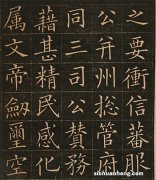 之要衝信蕃服
公并州揔管府
同三司公贊務
藉甚精民感化
属文帝劔璽空
sichuanhong.com